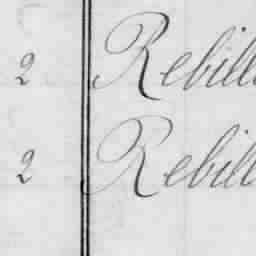 2 Rebill
2 Rebill